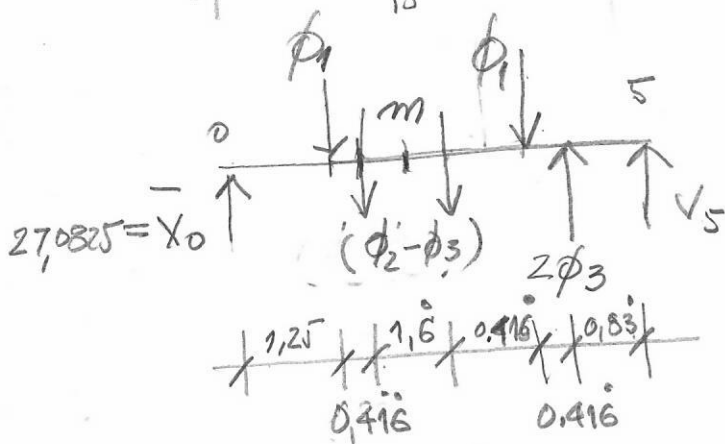 ϕ1 ϕ1
0 m 5
27,0825 = X̄0 (ϕ2-ϕ3) V5
2ϕ3
1,25 1,6̇ 0.416̇ 0,83̇
0,416̇ 0.416̇